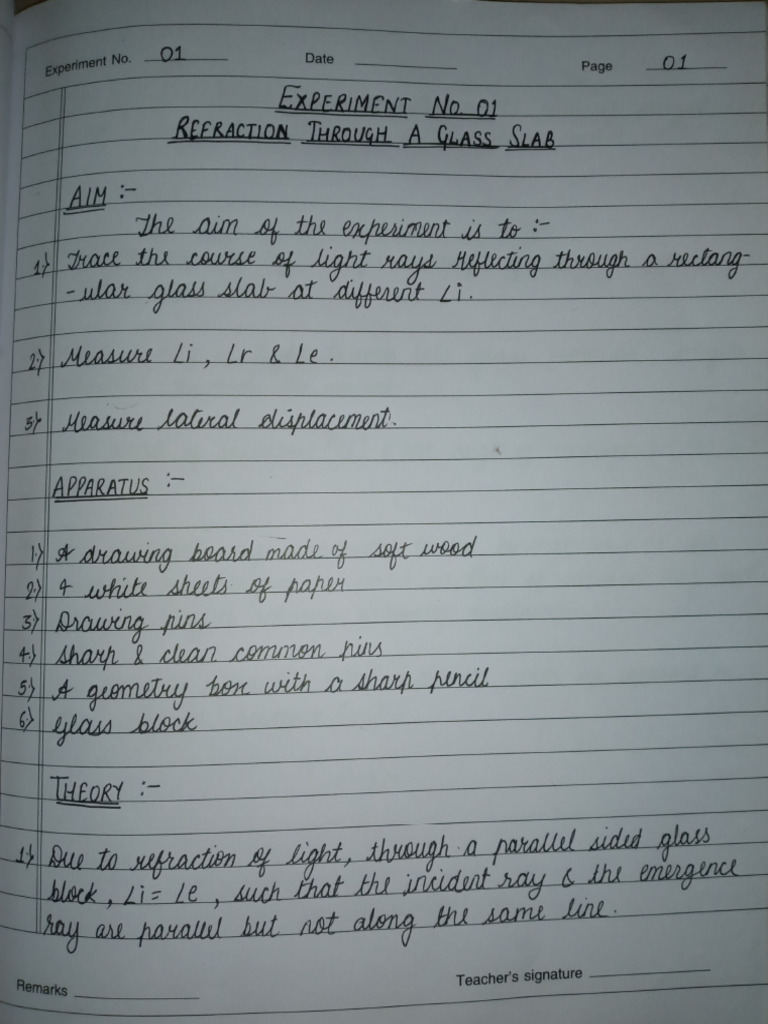 Experiment No. 01 Date Page 01
EXPERIMENT NO. 01
REFRACTION THROUGH A GLASS SLAB
AIM :-
The aim of the experiment is to :-
1) Trace the course of light rays reflecting through a rectang-
-ular glass slab at different ∠i.
2) Measure ∠i, ∠r & ∠e.
3) Measure lateral displacement.
APPARATUS :-
1) A drawing board made of soft wood
2) 4 white sheets of paper
3) Drawing pins
4) Sharp & clean common pins
5) A geometry box with a sharp pencil
6) Glass block
THEORY :-
1) Due to refraction of light, through a parallel sided glass
block, ∠i = ∠e, such that the incident ray & the emergence
ray are parallel but not along the same line.
Remarks Teacher's signature